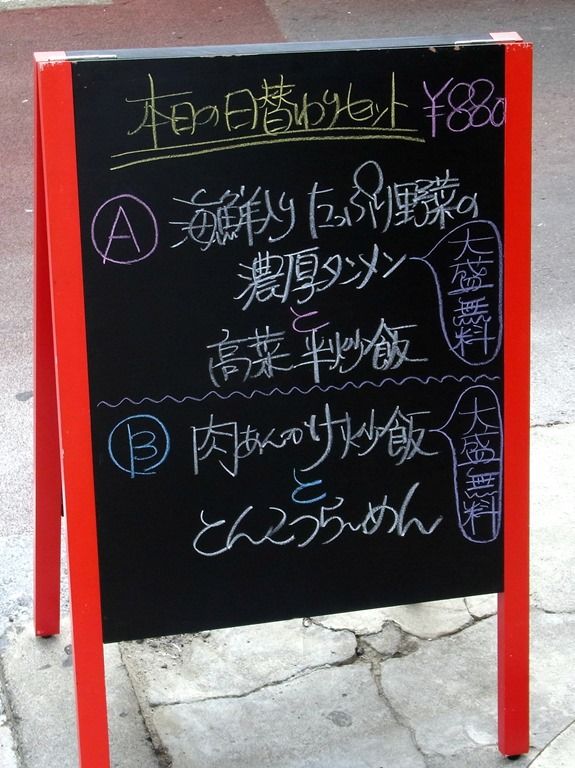 本日の日替わりセット ¥880
A 海鮮入りたっぷり野菜の
濃厚タンメン
大盛無料
と
高菜 半炒飯
B 肉あんかけ炒飯
大盛無料
と
とんこつらーめん